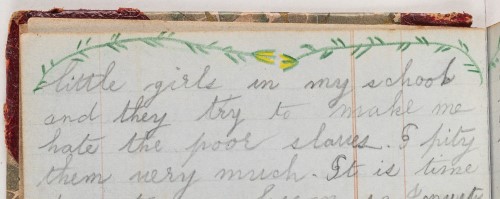 little girls in my school
and they try to make me
hate the poor slaves. I pity
them very much. It is time